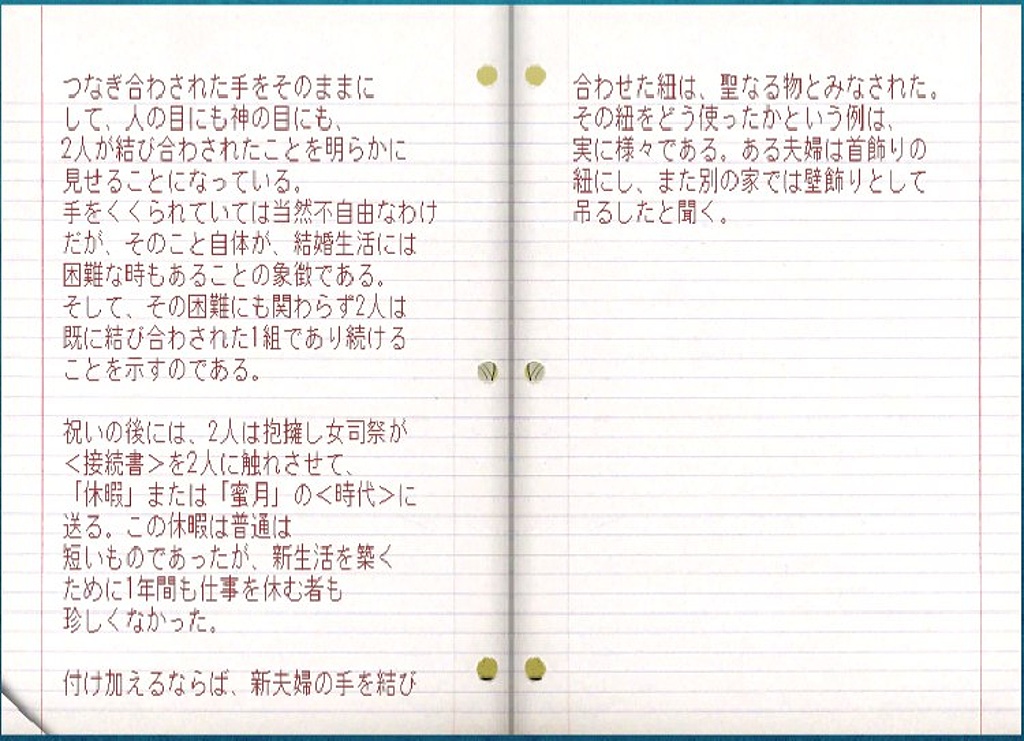 つなぎ合わされた手をそのままに
して、人の目にも神の目にも、
2人が結び合わされたことを明らかに
見せることになっている。
手をくくられていては当然不自由なわけ
だが、そのこと自体が、結婚生活には
困難な時もあることの象徴である。
そして、その困難にも関わらず2人は
既に結び合わされた1組であり続ける
ことを示すのである。
祝いの後には、2人は抱擁し女司祭が
＜接続書＞を2人に触れさせて、
「休暇」または「蜜月」の＜時代＞に
送る。この休暇は普通は
短いものであったが、新生活を築く
ために1年間も仕事を休む者も
珍しくなかった。
付け加えるならば、新夫婦の手を結び
合わせた紐は、聖なる物とみなされた。
その紐をどう使ったかという例は、
実に様々である。ある夫婦は首飾りの
紐にし、また別の家では壁飾りとして
吊るしたと聞く。